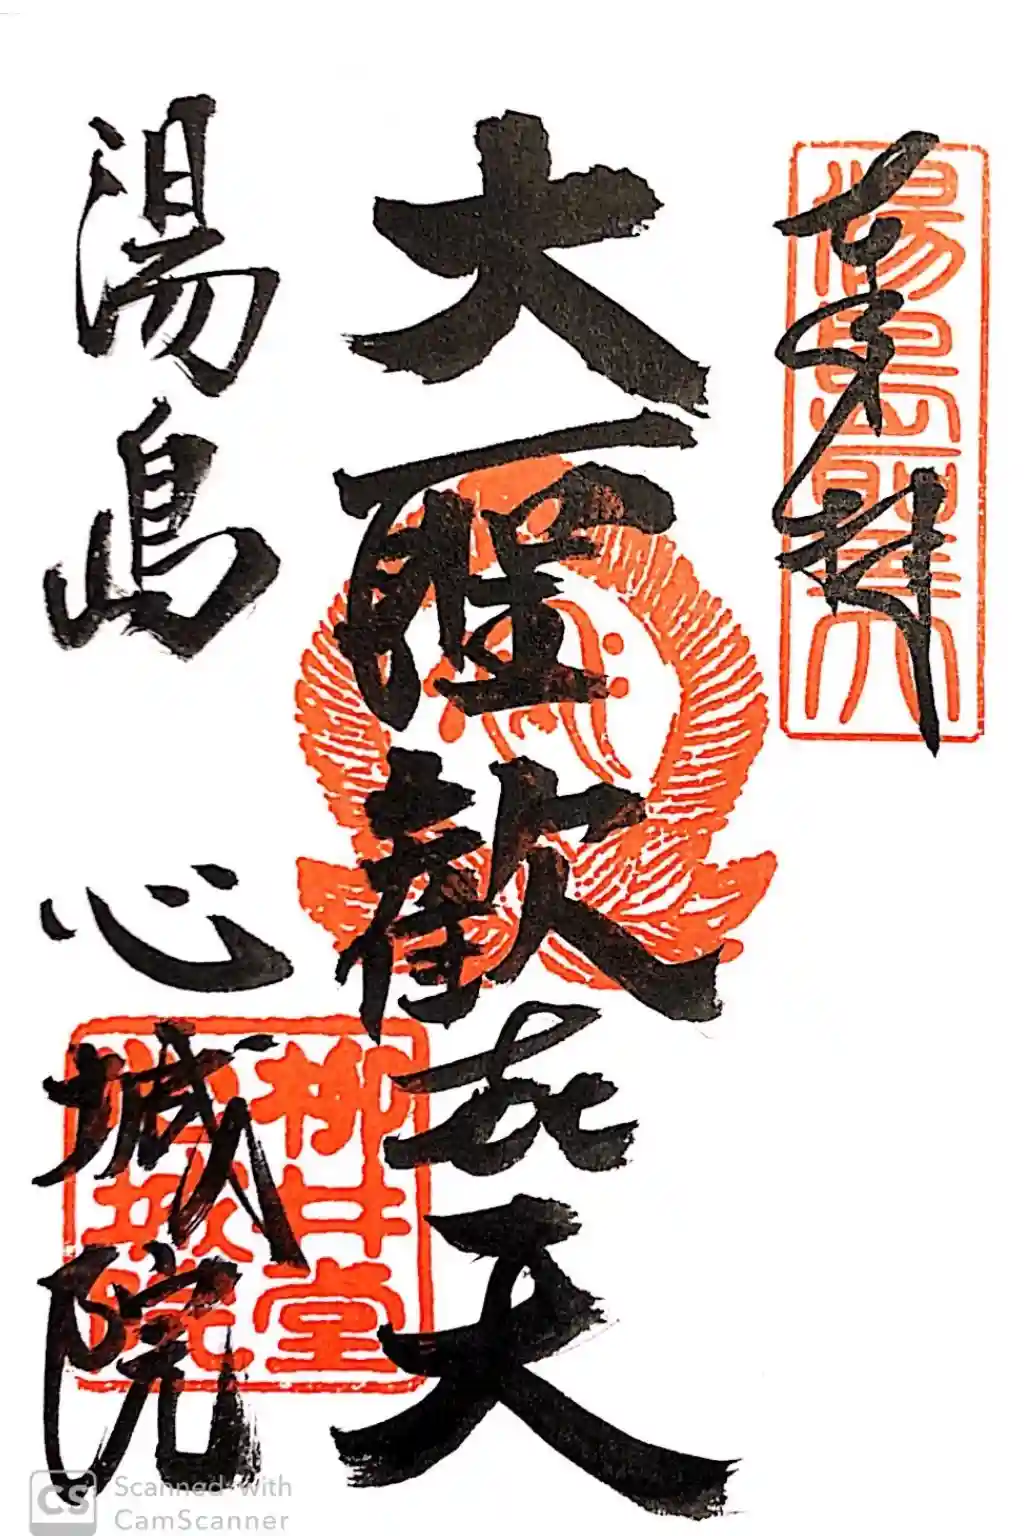 奉拝
湯島聖天
大聖歓喜天
湯島 心城院
柳井堂
心城院
Scanned with
CamScanner